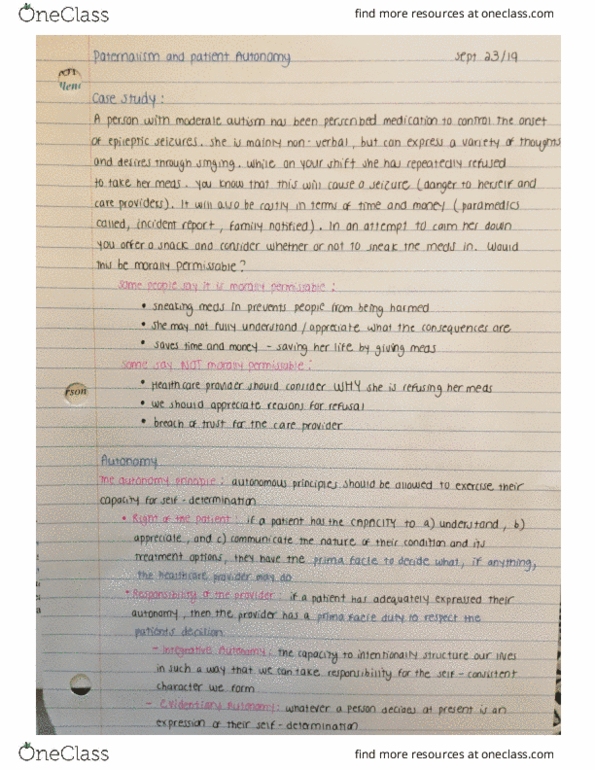 OneClass
find more resources at oneclass.com
Paternalism and patient Autonomy sept 23/19
Case study :
A person with moderate autism has been perscribed medication to control the onset
of epileptic seizures. she is mainly non-verbal, but can express a variety of thoughts
and desires through singing. While on your shift she has repeatedly refused
to take her meds. you know that this will cause a seizure (danger to herself and
care providers). It will also be costly in terms of time and money (paramedics
called, incident report, family notified). In an attempt to calm her down
you offer a snack and consider whether or not to sneak the meds in. Would
this be morally permissable?
Some people say it is morally permissable :
• sneaking meds in prevents people from being harmed
• she may not fully understand / appreciate what the consequences are
• saves time and money - saving her life by giving meds
Some say NOT morally permissable :
• Healthcare provider should consider WHY she is refusing her meds
• we should appreciate reasons for refusal
• breach of trust for the care provider
rson
Autonomy
The autonomy principle : autonomous principles should be allowed to exercise their
capacity for self-determination
• Right of the patient : if a patient has the CAPACITY to a) understand, b)
appreciate, and c) communicate the nature of their condition and its
treatment options, they have the prima facie to decide what, if anything,
the healthcare provider may do
• Responsibility of the provider : if a patient has adequately expressed their
autonomy, then the provider has a prima facie duty to respect the
patients decision
- Integrative Autonomy : the capacity to intentionally structure our lives
in such a way that we can take responsibility for the self-consistent
character we form
- Evidentiary Autonomy : whatever a person decides at present is an
expression of their self-determination
OneClass
find more resources at oneclass.com